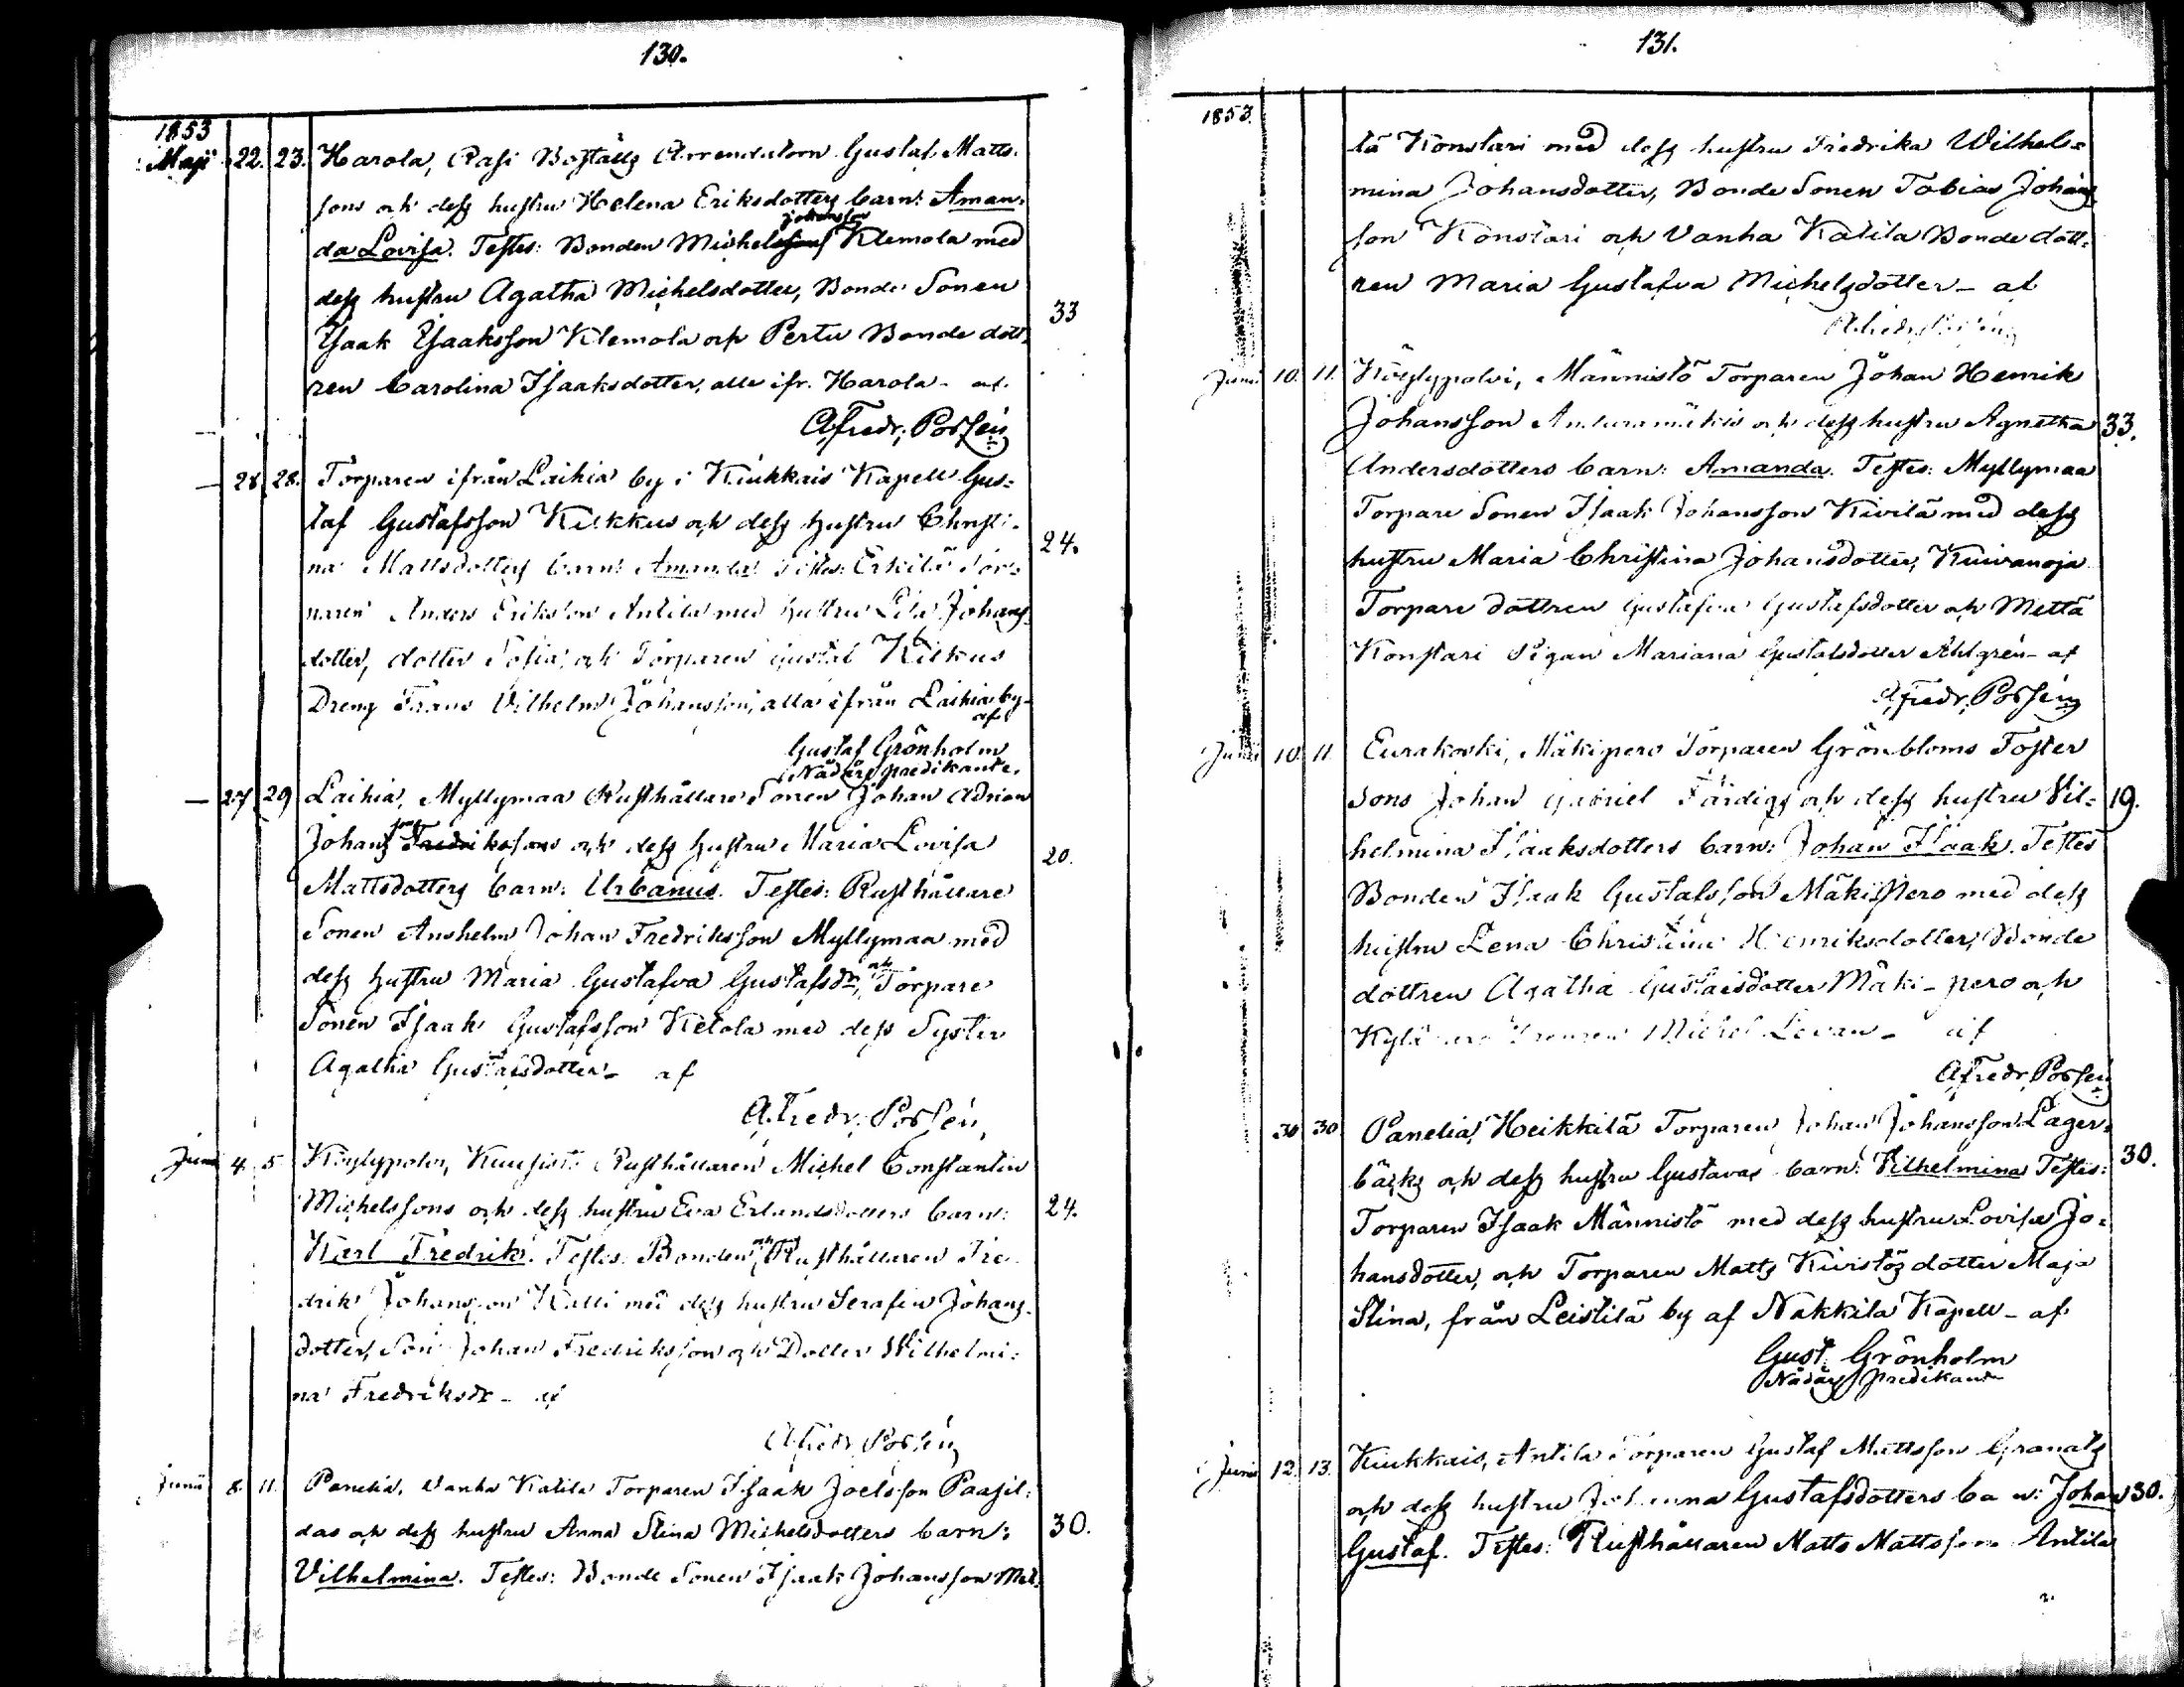 130.
1853
Maji 22. 23. Harola, Pasi Boställs Arrendatorn Gustaf Matts-
sons och dess hustru Helena Eriksdotters barn: Aman-
da Lovisa. Testes: Bonden Michel Johansson Klemola med
dess hustru Agatha Michelsdotter, Bonde Sonen
Isaak Isaaksson Klemola och Pertu Bonde dott- 33
ren Carolina Isaaksdotter, alle ifr. Harola - af
A. Fredr. Possén
— 28. 28. Torparen ifrån Laihia by i Kiukkais Kapell Gus-
taf Gustafsson Kilkkus och dess hustru Christi-
na Mattsdotters barn: Amanda. Testes: Erkilä Tor- 24.
paren Anders Eriksson Antila med hustru Johans-
dotter, dotter Sofia, och Torparen Gustaf Kilkus
Dreng Frans Vilhelm Johansson, alla ifrån Laihia by -
af
Gustaf Grönholm
Nådårs predikante.
— 27 29 Laihia, Myllymaa Rusthållare Sonen Johan Adrian
Johans son Fredrikssons och dess hustru Maria Lovisa
Mattsdotters barn: Urbanus. Testes: Rusthållare 20.
Sonen Anshelm Johan Fredriksson Myllymaa med
dess hustru Maria Gustafva Gustafsdr, och Torpare
Sonen Isaak Gustafsson Ketola med dess Syster
Agatha Gustafsdotter - af
A. Fredr. Possén
Junii 4. 5. Köylypolvi, Kuusisto Rusthållaren Michel Constantin
Michelssons och dess hustru Eva Erlandsdotters barn: 24.
Karl Fredrik. Testes: Bonden och Rusthållaren Fre-
drik Johansson Kalli med dess hustru Serafia Johans-
dotter, Son Johan Fredriksson och Dotter Wilhelmi-
na Fredriksdr - af
A. Fredr. Possén
Junii 8. 11. Panelia, Vanha Katila Torparen Isaak Joelsson Paasil-
das och dess hustru Anna Stina Michelsdotters barn: 30.
Vilhelmina. Testes: Bonde Sonen Isaak Johansson Met-
131.
1853.
tä Konstari med dess hustru Fredrika Wilhel-
mina Johansdotter, Bonde Sonen Tobias Johans
son Konstari och Vanha Katila Bonde dott-
ren Maria Gustafva Michelsdotter - af
A. Fredr. Possén
Junii 10. 11. Köylypolvi, Männistö Torparen Johan Henrik
Johansson och dess hustru Agnetha 33.
Andersdotters barn: Amanda. Testes: Myllymaa
Torpare Sonen Isaak Johansson Kivilä med dess
hustru Maria Christina Johansdotter, Kuivanoja
Torpare dottren Gustafva Gustafsdotter och Mettä
Konstari Pigan Mariana Gustafsdotter Ahlgrén - af
A. Fredr. Possén
Junii 10. 11. Eurakoski, Mäkipero Torparen Grönbloms Foster
Sons Johan Gabriel Färdigs och dess hustru Vil- 19.
helmina Isaaksdotters barn: Johan Isaak. Testes
Bonden Isaak Gustafsson Mäkipero med dess
hustru Lena Christina Henriksdotter, Bonde
dottren Agatha Gustafsdotter Mäki-pero och
Michel Levan - af
A. Fredr. Possén
30 30 Panelia, Heikkilä Torparen Johan Johansson Lager-
bäcks och dess hustru Gustavas barn: Vilhelmina Testes: 30.
Torparen Isaak Männistö med dess hustru Lovisa Jo-
hansdotter, och Torparen Matts Kivistös dotter Maja
Stina, från Leistilä by af Nakkila Kapell - af
Gust. Grönholm
Nådårs predikant
Junii 12. 13. Kiukkais, Antila Torparen Gustaf Mattsson Granats
och dess hustru Johanna Gustafsdotters barn: Johan 30.
Gustaf. Testes: Rusthållaren Matts Mattsson Antila